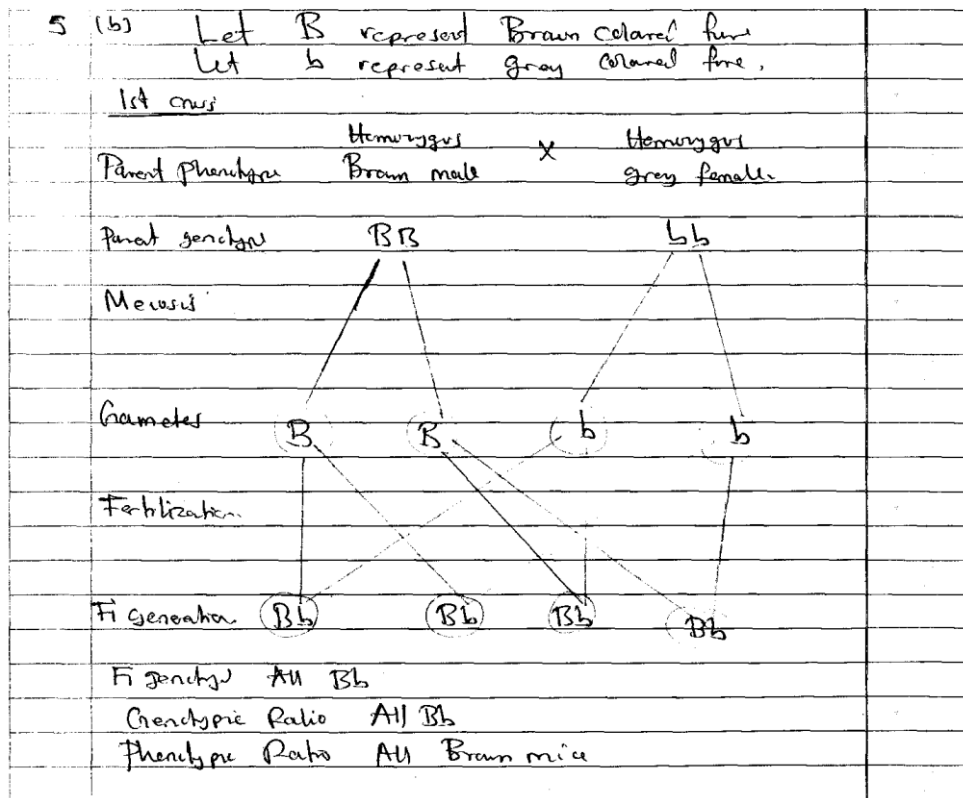 5 (b) Let B represent Brown colored fure
Let b represent grey colored fure.
1st cross
Homozygus X Homozygus
Parent phenotype Brown male grey female.
Parent genotype BB bb
Meiosis
Gametes B B b b
Fertilization.
F1 generation Bb Bb Bb Bb
F1 genotype All Bb
Genotypic Ratio All Bb
Phenotypic Ratio All Brown mice